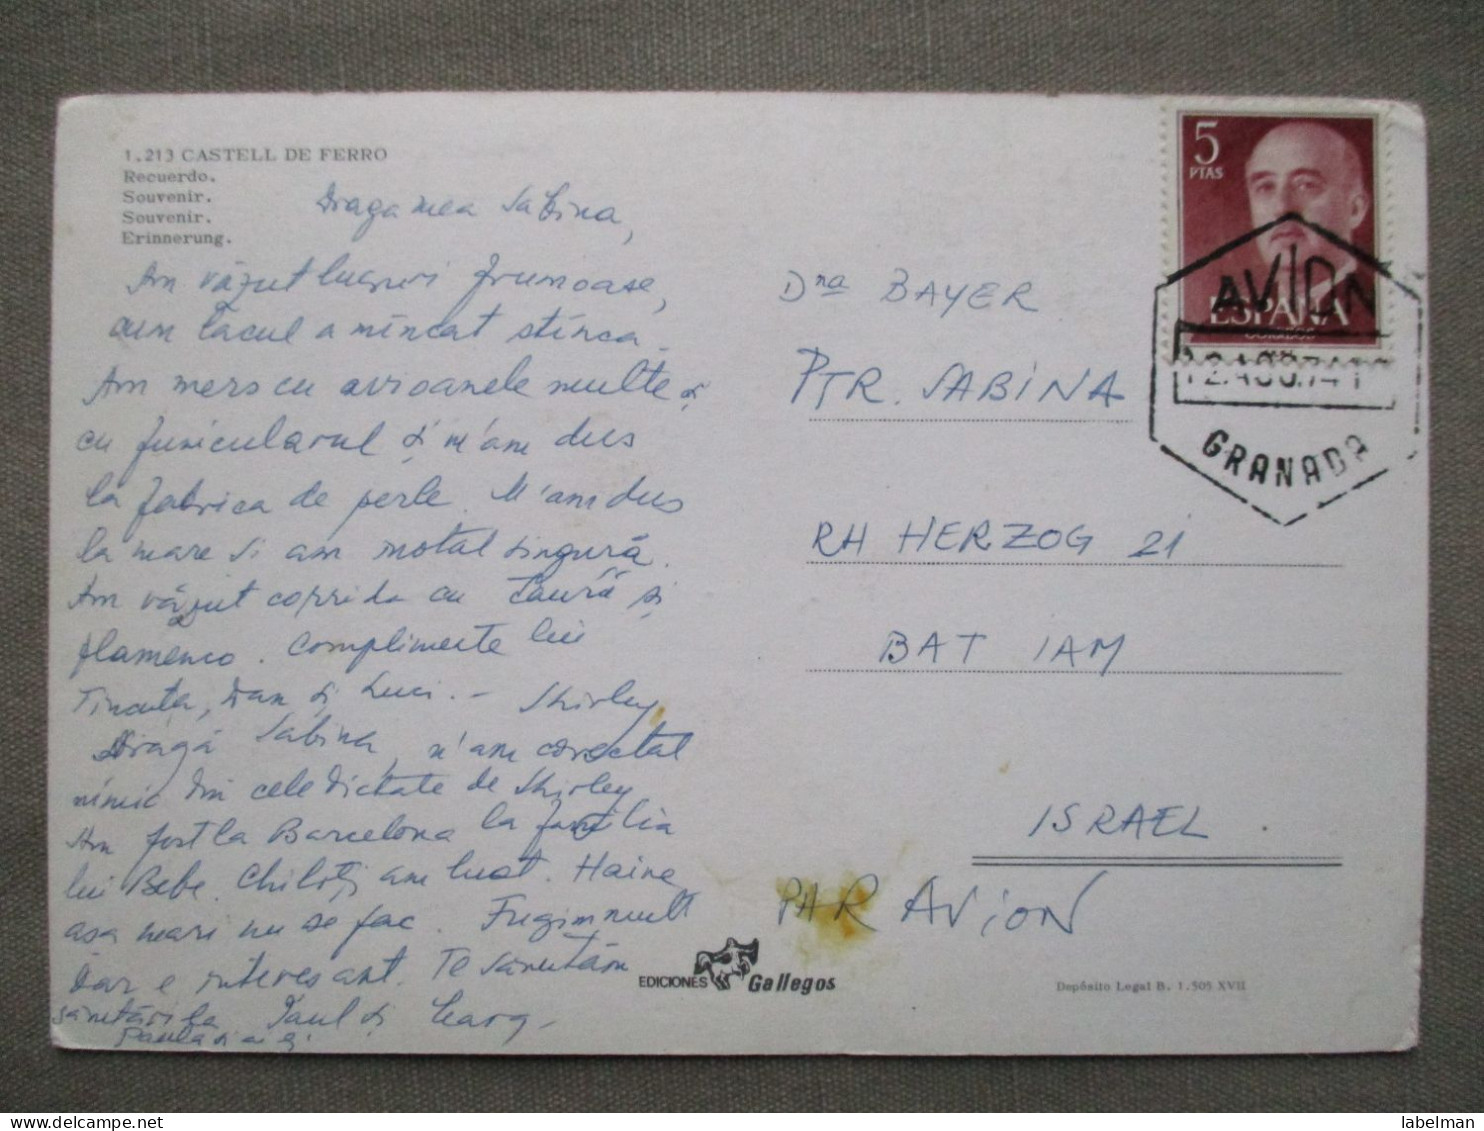 1.213 CASTELL DE FERRO
Recuerdo.
Souvenir.
Souvenir.
Erinnerung.
Draga mea Sabina,
Am văzut lucruri frumoase,
cum lacul a mîncat stînca.
Am mers cu avioanele multe și
cu funicularul și m'am dus
la fabrica de perle. M'am dus
la mare și am înotat singură.
Am văzut corrida cu taură și
flamenco. Complimente lui
Tincuța, Dan și Luci. - Shirley
Dragă Sabina, n'am corectat
nimic din cele dictate de Shirley
Am fost la Barcelona la familia
lui Bebe. Chiloți am luat. Haine
așa mari nu se fac. Fugim mult
dar e interesant. Te sărutăm
sănătări la Paul și
Dna BAYER
PTR. SABINA
RH HERZOG 21
BAT IAM
ISRAEL
PAR AVION
5
PTAS
ESPAÑA
CORREOS
AVION
12 AGO 74
GRANADA
EDICIONES Gallegos
Depósito Legal B. 1.505 XVII
labelman
delcampe.net